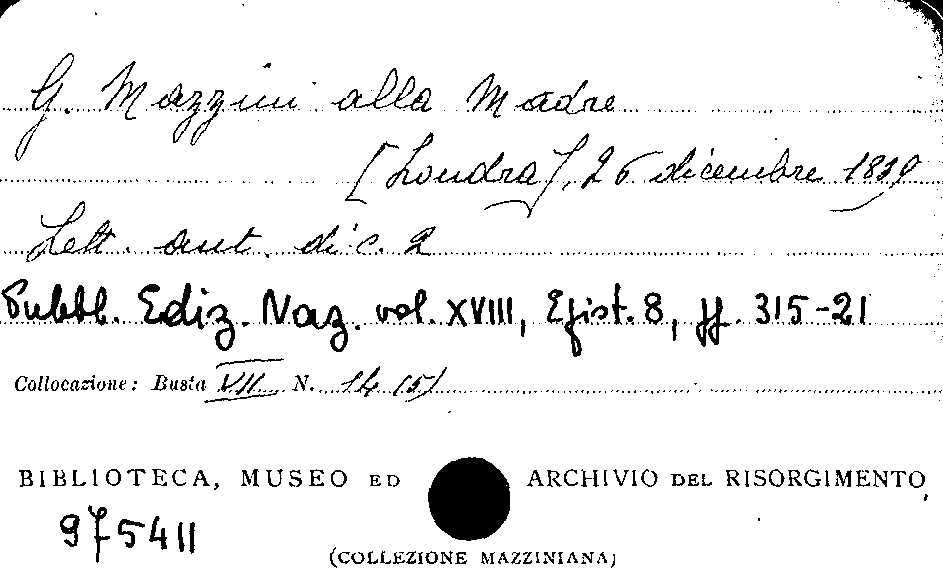 G. Mazzini alla Madre
[Londra], 26 dicembre 1839
Lett. aut. di c. 2
Pubbl. Ediz. Naz. vol. XVIII, Epist. 8, pp. 315-21
Collocazione: Busta VII N. 14 (5)
BIBLIOTECA, MUSEO ED ARCHIVIO DEL RISORGIMENTO
975411
(COLLEZIONE MAZZINIANA)